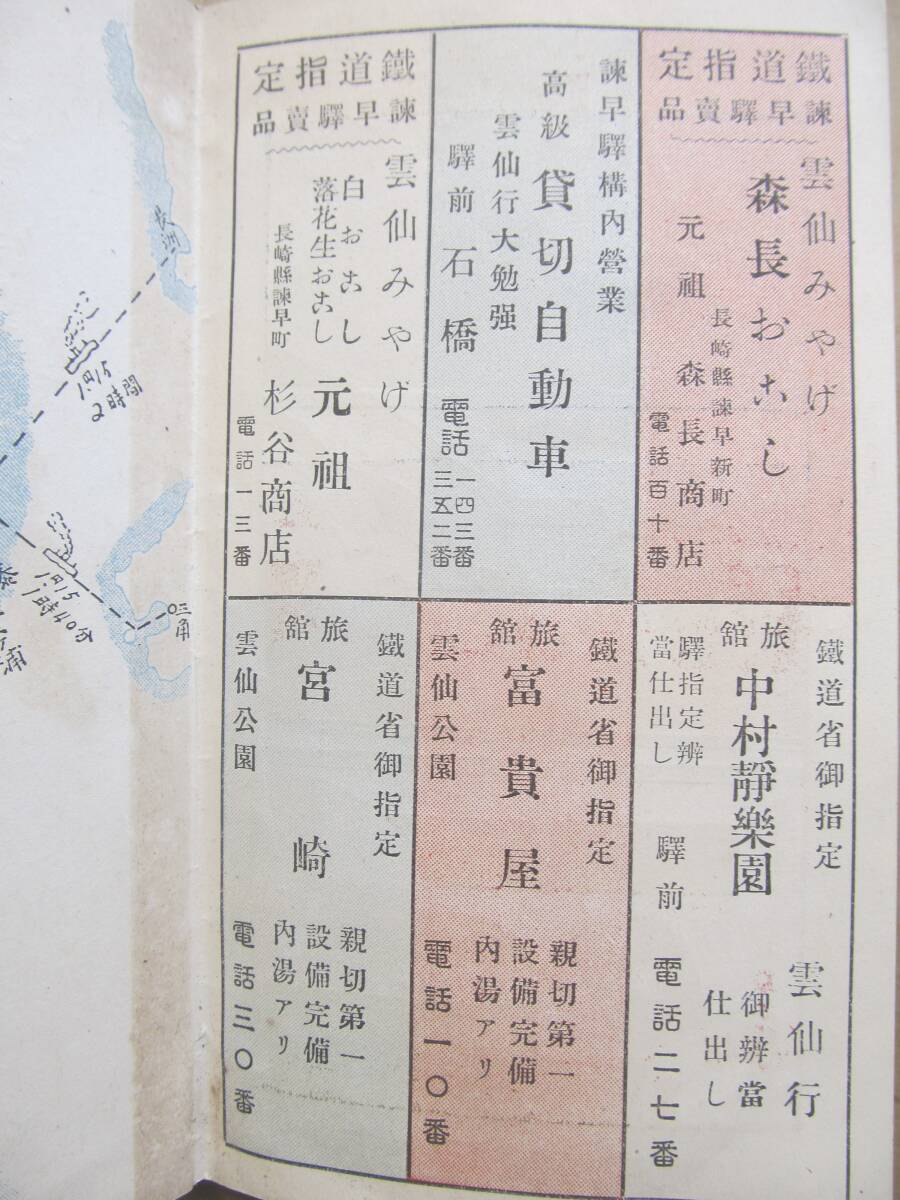 鐵道指定
諫早驛賣品
雲仙みやげ
森長おこし
長崎縣諫早新町
元祖 森長商店
電話百十番
諫早驛構内營業
高級貸切自動車
雲仙行大勉强
驛前 石橋 電話 一四三番
三五二番
鐵道指定
諫早驛賣品
雲仙みやげ
白おこし
落花生おこし
元祖
長崎縣諫早町
杉谷商店
電話一三番
鐵道省御指定
雲仙行
旅館
中村靜樂園
御辨當
仕出し
驛指定辨
當仕出し
驛前 電話二七番
鐵道省御指定
旅館
富貴屋
親切第一
設備完備
内湯アリ
雲仙公園
電話一〇番
鐵道省御指定
旅館
宮崎
親切第一
設備完備
内湯アリ
雲仙公園
電話三〇番
長洲
1円15
2時間
1円15
1時40分
三角